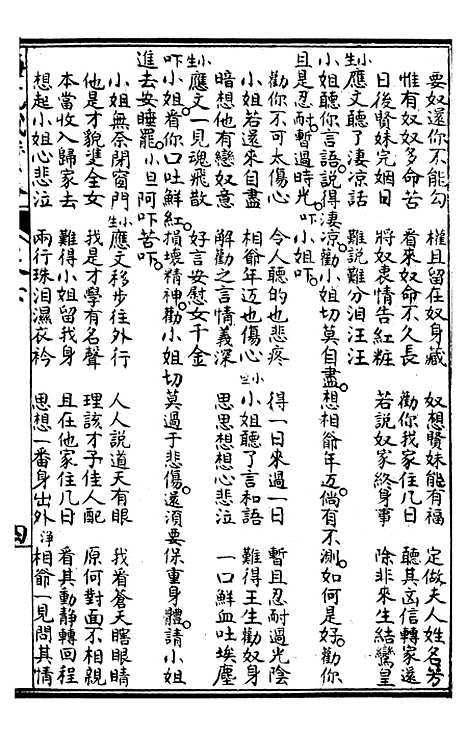 要奴還你不能勾　權且留在奴身藏　奴想賢妹能有福　定做夫人姓名芳
惟有奴奴多命苦　看來奴命不久長　勸你我家住几日　聽其啇信轉家還
日後賢妹完姻日　將奴衷情告紅粧　若說奴家終身事　除非來生結鸞皇
生小應文聽了淒凉話　難說難分泪汪汪
小姐聽你言語說得淒凉勸小姐切莫自盡想相爺年邁倘有不測如何是好勸你
且是忍耐暫過時光　吓小姐吓
勸你不可太傷心　令人聽的也悲疼　得一日來過一日　暫且忍耐過光陰
小姐若還來自盡　相爺年迈也傷心　旦小小姐聽了言和語　難得王生勸奴身
暗想他有孌奴意　解勸之言情義深　思思想想心悲泣　一口鮮血吐埃塵
生小應文一見魂飛散　好言安慰女千金
吓小姐看你口吐鮮紅損壞精神勸小姐切莫過于悲傷還須要保重身體請小姐
進去安睡罷小旦阿吓苦吓
小姐無奈閉窗門　生小應文移步往外行　人人說道天有眼　我看蒼天瞎眼睛
他是才貌雙全女　我是才學有名聲　理該才子佳人配　原何對面不相親
本當收入歸家去　難得小姐留我身　且在他家住几日　看其動静轉回程
想起小姐心悲泣　兩行珠泪濕衣衿　思想一番身出外　净相爺一見問其情
四